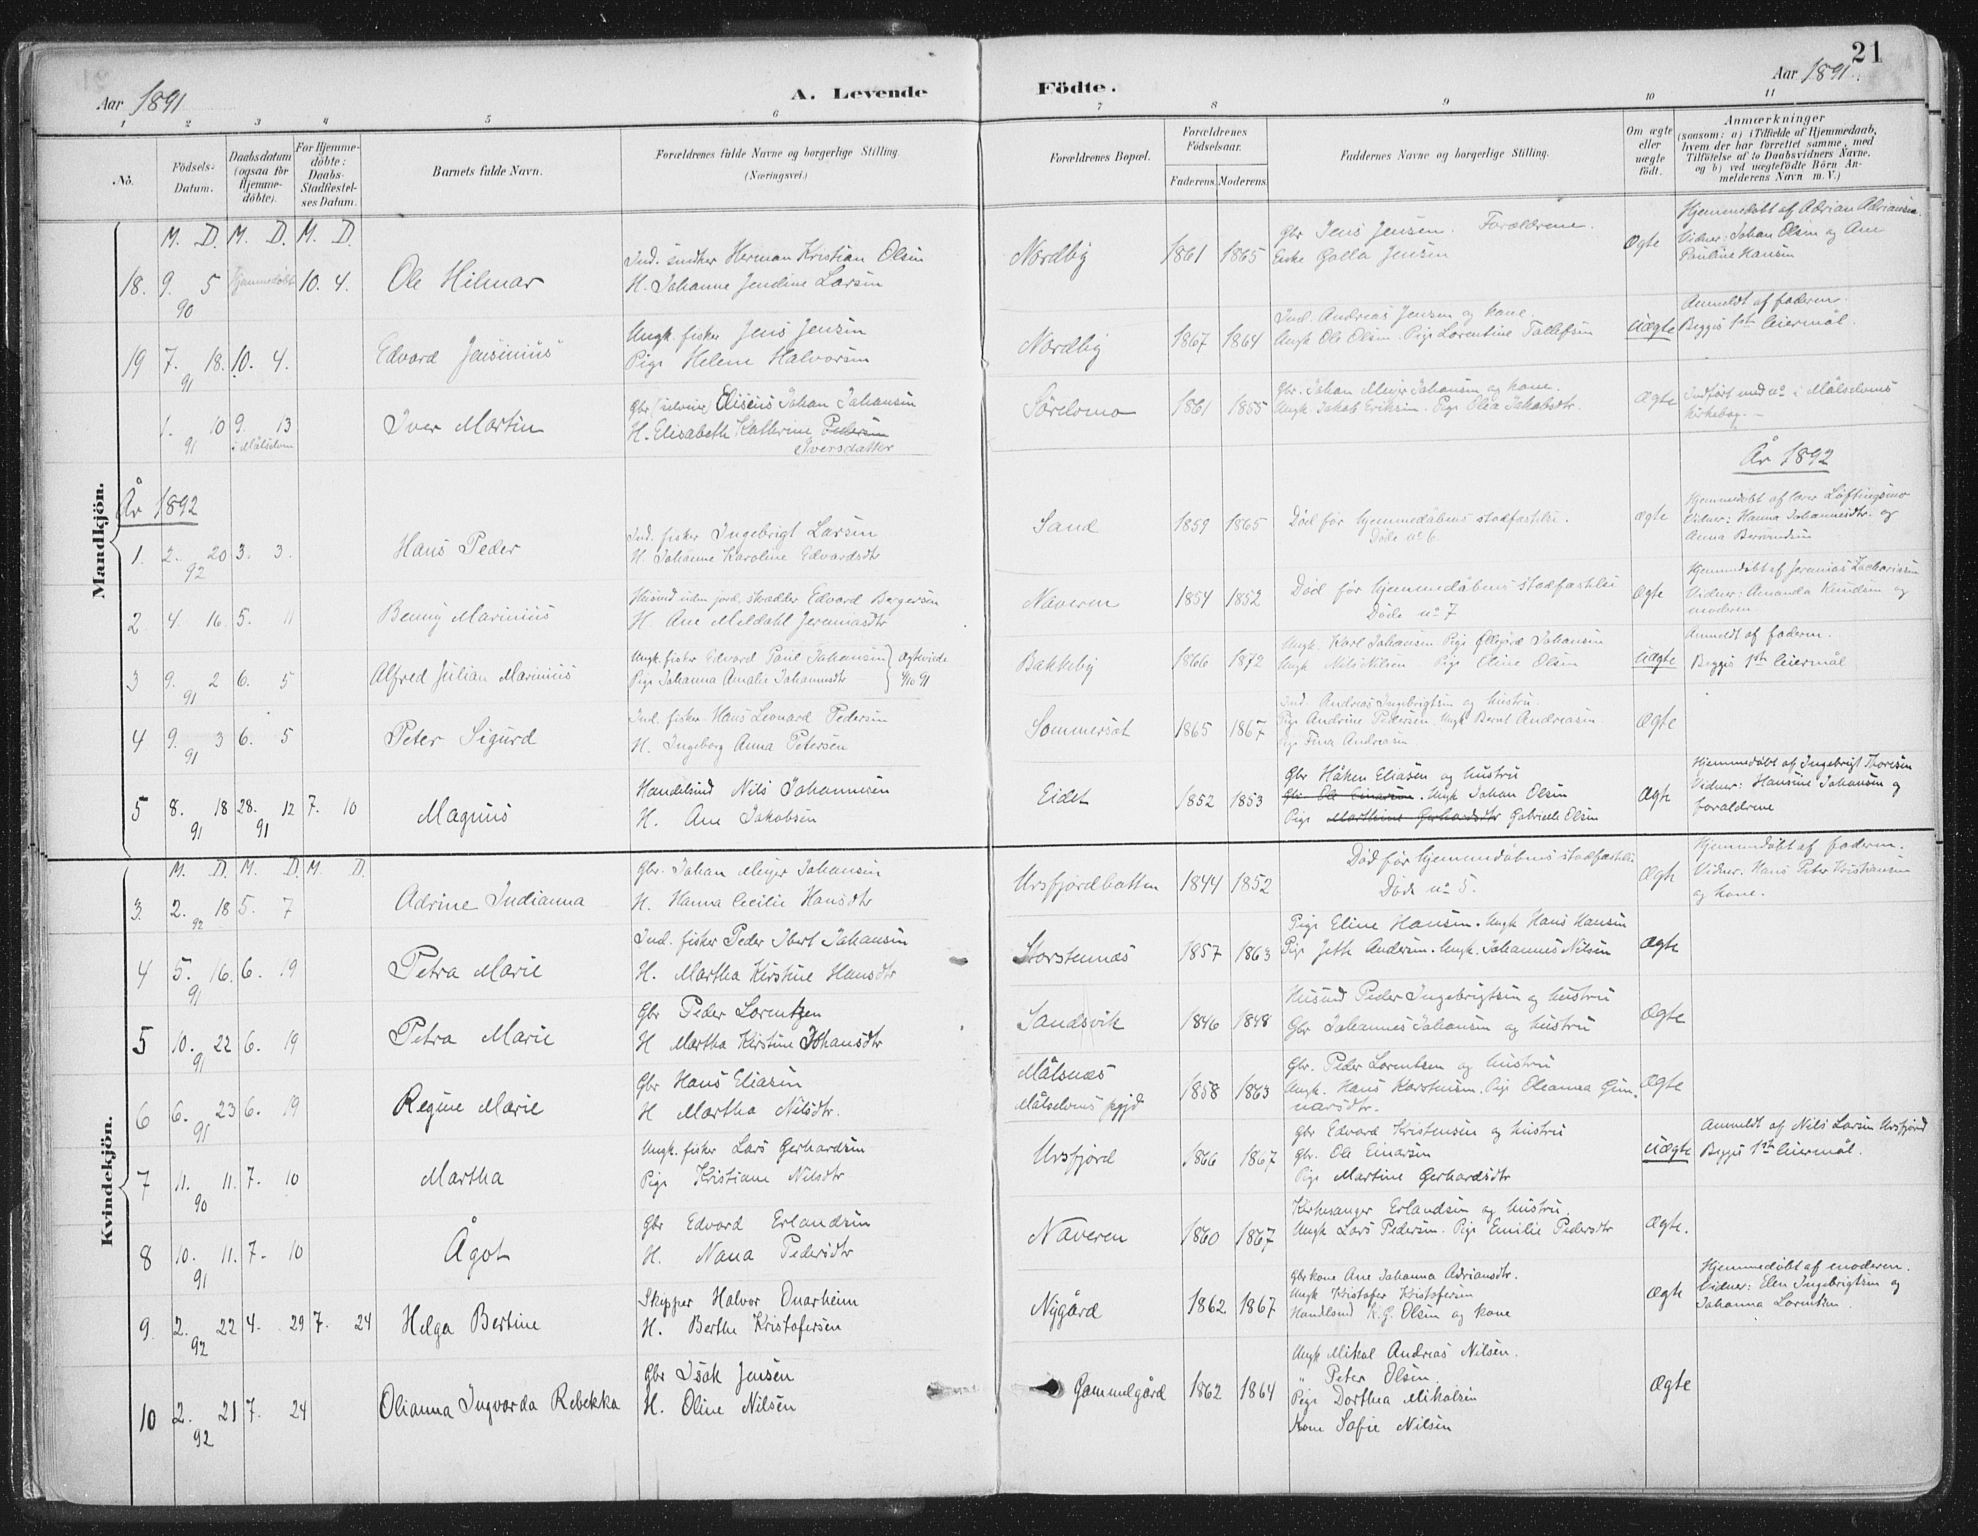 21
Aar 1891 A. Levende Födte. Aar 1891.
1 2 3 4 5 6 7 8 9 10 11
No. Födsels-Datum. Daabsdatum (ogsaa for Hjemme-döbte). For Hjemme-döbte: Daabs-Stadfæstel-ses Datum. Barnets fulde Navn. Forældrenes fulde Navne og borgerlige Stilling. (Næringsvei.) Forældrenes Bopæl. Forældrenes Födselsaar. Faderens. Moderens. Faddernes Navne og borgerlige Stilling. Om ægte eller uægte födt. Anmærkninger (saasom: a) i Tilfælde af Hjemmedaab, hvem der har forrettet samme, med Tilföielse af to Daabsvidners Navne. og b) ved uægtefödte Börn An-melderens Navn m. V.)
Mandkjön.
M. D. M. D. M. D.
18. 9. 5 90 Hjemmedøbt 10. 4. Ole Hilmar
Ind. Herman Kristian Olsen
H. Johanne Jendine Larsen
Nordby 1861 1865
Gbr Jens Jensen. Forældrene.
Enke Golla Jensen
Ægte
Hjemmedøbt af Adrian Adriansen.
Vidner: Johan Olsen og Ane
Pauline Hansen
19 7. 18. 91 10. 4. Edvard Jensinius
Ungk. fisker Jens Jensen
Pige Helene Halvorsen
Nordby 1867 1864
Ind. Andreas Jensen og kone.
Ungk Ole Olsen. Pige Lorentine Tollefsen
Uægte
Anmeldt af faderen.
Begges 1ste leiermål.
1. 10 91 9. 13 i Målselven Iver Martin
Gbr Eliseus Johan Johansen
H. Elisabeth Kathrine Pedersen
Iversdatter
Sörelvmo 1861 1855
Gbr. Johan Meyer Johansen og kone.
Ungk Jakob Eriksen. Pige Olea Jakobsdtr.
Ægte
Indført med no i Målselvens
kirkebog.
År 1892 År 1892
1. 2. 20 92 3. 3. Hans Peder
Ind. fisker Ingebrigt Larsen
H. Johanne Karoline Edvardsdtr
Sand 1859 1865
Död før hjemmedåbens stadfæstelse.
Døde no 6.
Ægte
Hjemmedøbt af lærer Løftingsmo
Vidner: Hanna Johannesdtr. og
Anna Berentsen
2 4. 16. 5. 11 Benny Marinius
Husmd uden jord, skrædder Edvard Bergersen
H. Ane Meldahl Jeremiasdtr
Naveren 1854 1852
Död før hjemmedåbens stadfæstelse
Døde no 7
Ægte
Hjemmedøbt af Jeremias Zachariasen
Vidner: Amanda Knudsen og
moderen
3 9. 2 91 6. 5 Alfred Julian Marinius
Ungk. fisker Edvard Paul Johansen } Ægteviede
Pige Johanna Amalie Johannesdtr } 4/10 91
Bakkeby 1866 1872
Ungk. Karl Johansen Pige Ollegård Johansen
Ungk Nils Nilsen Pige Eline Olsen
Uægte
Anmeldt af faderen.
Begges 1ste leiermål
4 9. 3 91 6. 5 Peter Sigurd
Ind. fisker Hans Leonard Pedersen
H. Ingeborg Anna Petersen
Sommerset 1865 1867
Ind Andreas Ingebrigtsen og hustru
Pige Andrine Pedersen. Ungk Bernt Andreasen.
Pige Fina Andreasen
Ægte
5 8. 18 91 28. 12 91 7. 10 Magnus
Handelsmd Nils Johannesen
H. Ane Jakobsen
Eidet 1852 1853
Gbr Håken Eliasen og hustru
Gbr. Ole Einarsen. Ungk Johan Olsen
Pige Marthine Gerhardsdtr Gabrielle Olsen
Ægte
Hjemmedøbt af Ingebrigt Thoresen
Vidner: Hansine Johansen og
forældrene
Kvindekjön.
M. D. M. D. M. D.
3. 2. 18 92 5. 7 Adrine Indianna
Gbr. Johan Meyer Johansen
H. Hanna Cecilie Hansdtr
Ursfjordbotten 1844 1852
Död før hjemmedåbens stadfæstelse
Døde no 5.
Ægte
Hjemmedøbt af faderen.
Vidner: Hans Peter Kristiansen
og kone.
4 5. 16. 91 6. 19 Petra Marie
Ind. fisker Peder Ibert Johansen
H. Martha Kirstine Hansdtr
Storstennæs 1857 1863
Pige Eline Hansen. Ungk Hans Hansen
Pige Jeth Andersen. Ungk. Johannes Nilsen
Ægte
5 10. 22 91 6. 19 Petra Marie
Gbr Peder Lorentzen
H Martha Kirstine Johansdtr
Sandsvik 1846 1848
Husmd Peder Ingebrigtsen og hustru
Gbr Johannes Johansen og hustru
Ægte
6 6. 23 91 6. 19 Regine Marie
Gbr Hans Eliasen
H Martha Nilsdtr.
Målsnæs
Målselvens pgjd
1858 1863
Gbr. Peder Lorentsen og hustru
Ungk. Hans Karstensen. Pige Oleanna Gun-
narsdtr.
Ægte
7 11. 11. 90 7. 10 Martha
Ungk. fisker Lars Gerhardsen
Pige Kristiane Nilsdtr
Ursfjord 1866 1867
Gbr Edvard Kristensen og hustru
Gbr. Ole Einarsen
Pige Martine Gerhardsdtr
Uægte
Anmeldt af Nils Larsen Ursfjord
Begges 1ste leiermål.
8 10. 11. 91 7. 10 Ågot
Gbr Edvard Erlandsen
H. Nana Pedersdtr
Naveren 1860 1867
Kirkesanger Erlandsen og hustru.
Ungk Lars Pedersen. Pige Emilie Pedersdtr
Ægte.
9. 2. 22 92 4. 29 7. 24 Helga Bertine
Skipper Halvor Onarheim
H. Berthe Kristofersen
Nygård 1862 1867
Gbrkone Ane Johanna Adriansdtr.
Ungk Kristofer Kristofersen
Handlsmd K.G. Olsen og kone
Ægte
Hjemmedøbt af moderen.
Vidner: Elen Ingebrigtsen og
Johanna Lorentzen.
10 2. 21 92 7. 24 Olianna Ingvarda Rebekka
Gbr Isak Jensen
H. Oline Nilsen
Gammelgård 1862 1864
Ungk Mikal Andreas Nilsen.
" Peter Olsen.
Pige Dorthea Mikalsen
Kone Sofie Nilsen
Ægte